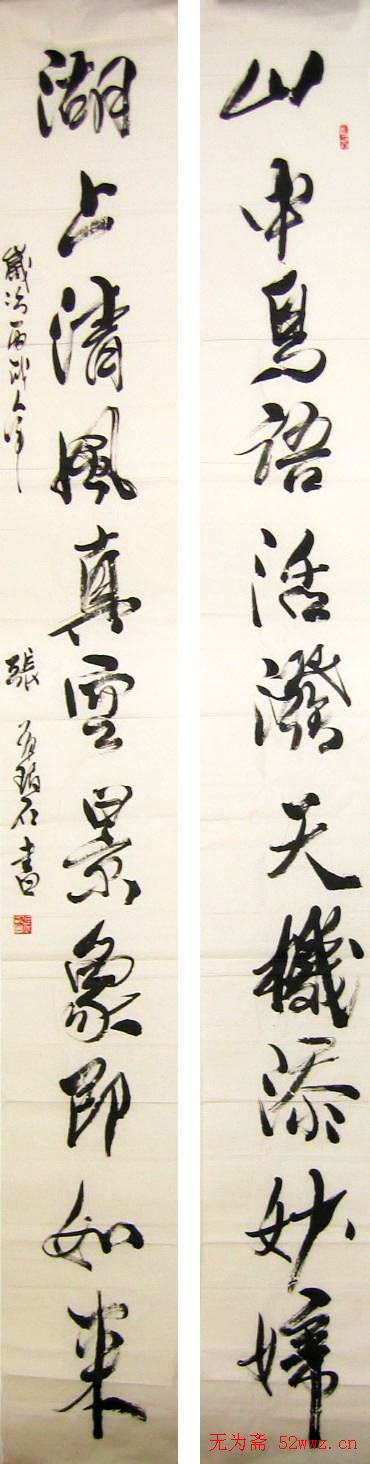 山中鳥語活潑天機添妙婦
湖上清風真空景象即如来
歲次丙戌年
張 石書
无为斋 52wwz.cn